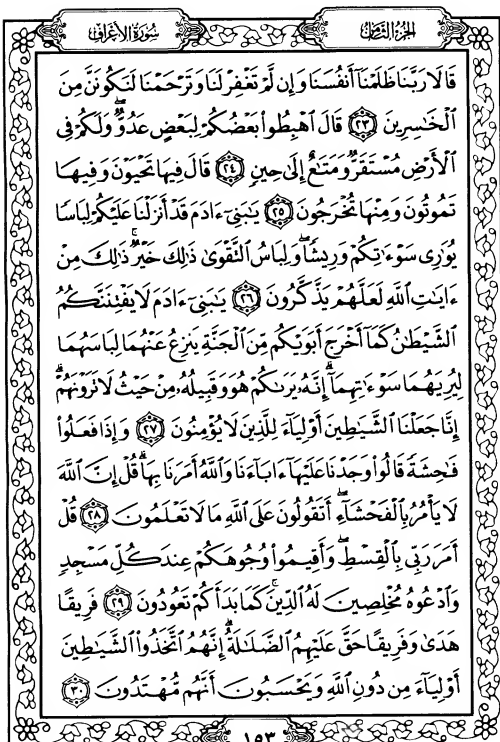 سُورَةُ الأَعْرَافِ الجُزْءُ الثَّامِنُ
قَالَا رَبَّنَا ظَلَمْنَآ أَنفُسَنَا وَإِن لَّمْ تَغْفِرْ لَنَا وَتَرْحَمْنَا لَنَكُونَنَّ مِنَ
ٱلْخَٰسِرِينَ ﴿٢٣﴾ قَالَ ٱهْبِطُوا۟ بَعْضُكُمْ لِبَعْضٍ عَدُوٌّ ۖ وَلَكُمْ فِى
ٱلْأَرْضِ مُسْتَقَرٌّ وَمَتَٰعٌ إِلَىٰ حِينٍ ﴿٢٤﴾ قَالَ فِيهَا تَحْيَوْنَ وَفِيهَا
تَمُوتُونَ وَمِنْهَا تُخْرَجُونَ ﴿٢٥﴾ يَٰبَنِىٓ ءَادَمَ قَدْ أَنزَلْنَا عَلَيْكُمْ لِبَاسًا
يُوَٰرِى سَوْءَٰتِكُمْ وَرِيشًا ۖ وَلِبَاسُ ٱلتَّقْوَىٰ ذَٰلِكَ خَيْرٌ ۚ ذَٰلِكَ مِنْ
ءَايَٰتِ ٱللَّهِ لَعَلَّهُمْ يَذَّكَّرُونَ ﴿٢٦﴾ يَٰبَنِىٓ ءَادَمَ لَا يَفْتِنَنَّكُمُ
ٱلشَّيْطَٰنُ كَمَآ أَخْرَجَ أَبَوَيْكُم مِّنَ ٱلْجَنَّةِ يَنزِعُ عَنْهُمَا لِبَاسَهُمَا
لِيُرِيَهُمَا سَوْءَٰتِهِمَآ ۗ إِنَّهُۥ يَرَىٰكُمْ هُوَ وَقَبِيلُهُۥ مِنْ حَيْثُ لَا تَرَوْنَهُمْ ۗ
إِنَّا جَعَلْنَا ٱلشَّيَٰطِينَ أَوْلِيَآءَ لِلَّذِينَ لَا يُؤْمِنُونَ ﴿٢٧﴾ وَإِذَا فَعَلُوا۟
فَٰحِشَةً قَالُوا۟ وَجَدْنَا عَلَيْهَآ ءَابَآءَنَا وَٱللَّهُ أَمَرَنَا بِهَا ۗ قُلْ إِنَّ ٱللَّهَ
لَا يَأْمُرُ بِٱلْفَحْشَآءِ ۖ أَتَقُولُونَ عَلَى ٱللَّهِ مَا لَا تَعْلَمُونَ ﴿٢٨﴾ قُلْ
أَمَرَ رَبِّى بِٱلْقِسْطِ ۖ وَأَقِيمُوا۟ وُجُوهَكُمْ عِندَ كُلِّ مَسْجِدٍ
وَٱدْعُوهُ مُخْلِصِينَ لَهُ ٱلدِّينَ ۚ كَمَا بَدَأَكُمْ تَعُودُونَ ﴿٢٩﴾ فَرِيقًا
هَدَىٰ وَفَرِيقًا حَقَّ عَلَيْهِمُ ٱلضَّلَٰلَةُ ۗ إِنَّهُمُ ٱتَّخَذُوا۟ ٱلشَّيَٰطِينَ
أَوْلِيَآءَ مِن دُونِ ٱللَّهِ وَيَحْسَبُونَ أَنَّهُم مُّهْتَدُونَ ﴿٣٠﴾
١٥٣